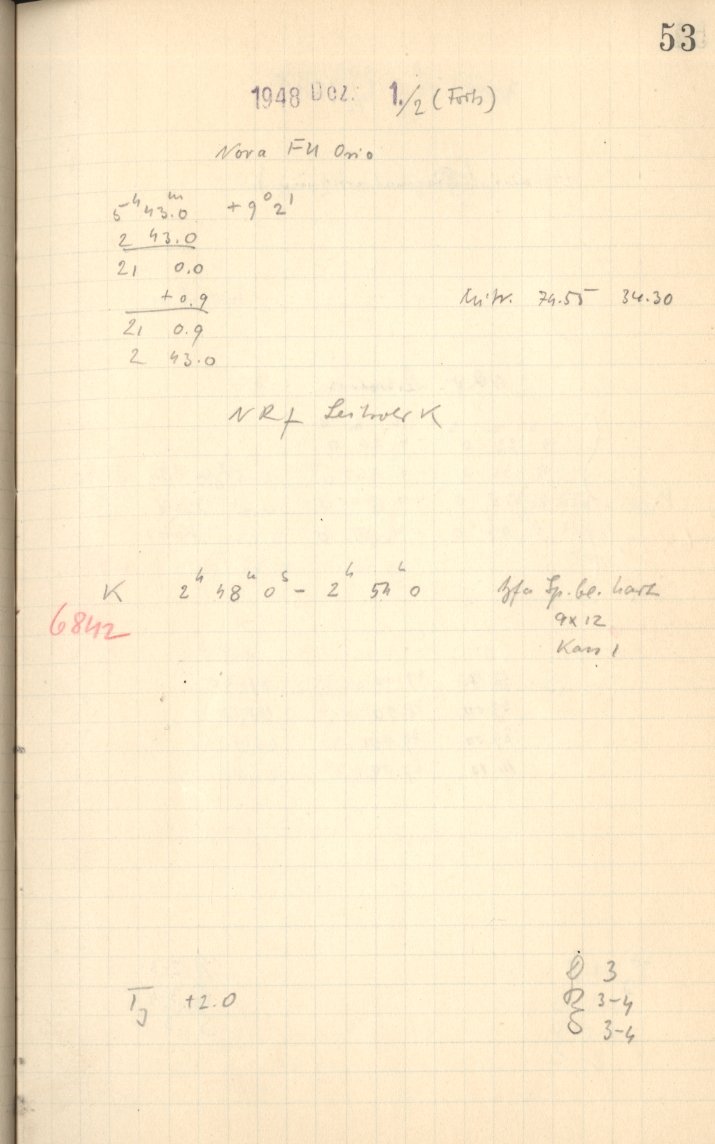 53
1948 Dez. 1./2 (Forts)
Nova FU Orio
5ʰ 43ᵐ.0 +9° 2'
2 43.0
21 0.0
+0.9
21 0.9
2 43.0
Mitr. 74.55 34.30
NRf K
K 2ʰ 48ᵐ 0ˢ - 2ʰ 54ᵐ 0 Agfa Sp. bl. hart
6842
9x12
Kass 1
T +2.0
3
3-4
3-4